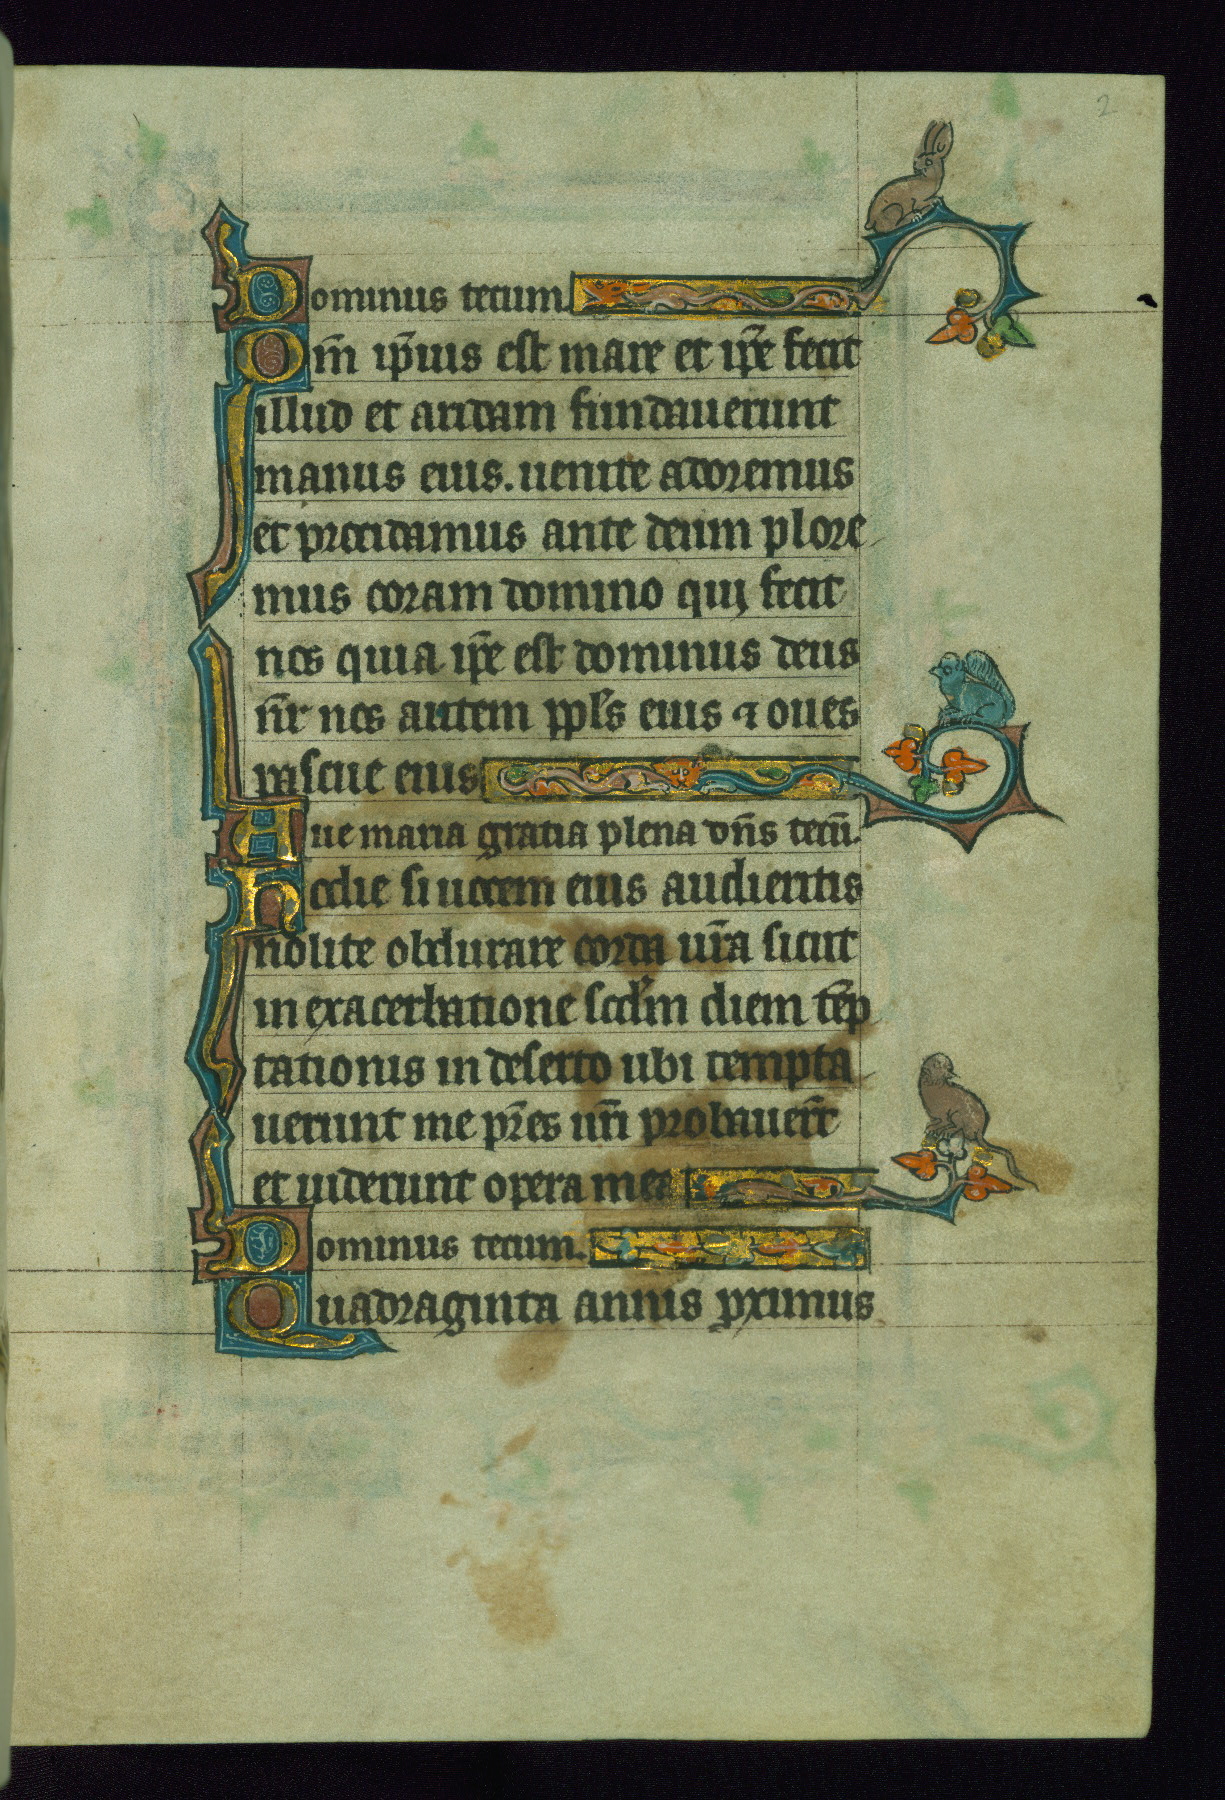 2
Dominus tecum.
Qm̄ ip̄ius est mare et ip̄e fecit
illud et aridam fundauerunt
manus eius. uenite adoremus
et procidamus ante deum plore
mus coram domino qui fecit
nos quia ip̄e est dominus deus
nr̄ nos autem ppl̄s eius ⁊ oues
pascue eius
Aue maria gratia plena dn̄s tecū.
Hodie si uocem eius audieritis
nolite obdurare corda ur̄a sicut
in exacerbatione scd̄m diem tēp
tationis in deserto ubi tempta
uerunt me pr̄es ur̄i probauer̄t
et uiderunt opera mea
Dominus tecum.
Quadraginta annis ꝓximus